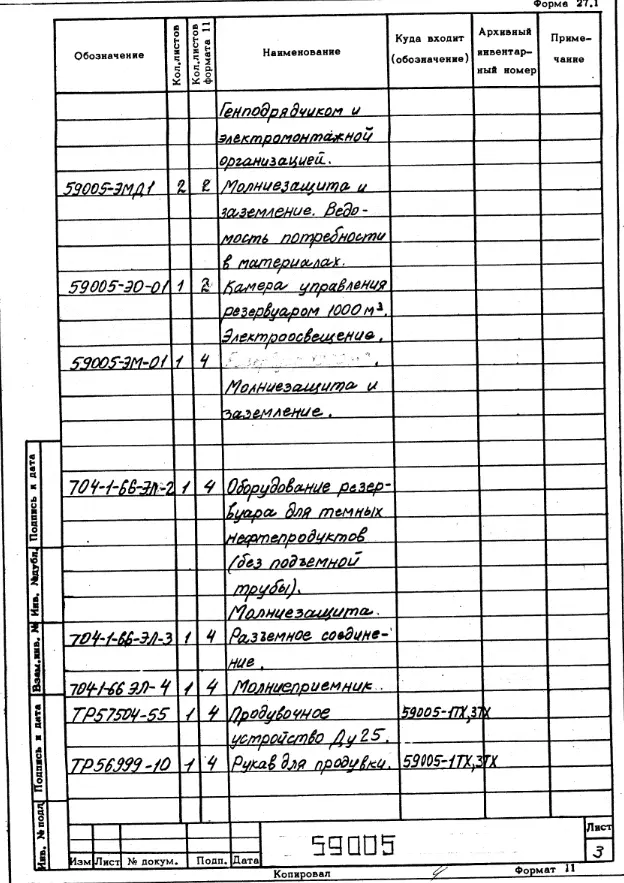 Форма 27.1
Обозначение Кол.листов Кол.листов формата 11 Наименование Куда входит (обозначение) Архивный инвентарный номер Примечание
Генподрядчиком и
электромонтажной
организацией.
59005-ЭМД1 2 2 Молниезащита и
заземление. Ведо-
мость потребности
в материалах.
59005-ЭО-01 1 2 Камера управления
резервуаром 1000 м³.
Электроосвещение.
59005-ЭМ-01 1 4
Молниезащита и
заземление.
704-1-66-ЭЛ-2 1 4 Оборудование резер-
вуара для темных
нефтепродуктов
(без подъемной
трубы).
Молниезащита.
704-1-66-ЭЛ-3 1 4 Разъемное соедине-
ние.
704-1-66 ЭЛ-4 1 4 Молниеприемник.
ТР57504-55 1 4 Продувочное 59005-1ТХ,3ТХ
устройство Ду 25.
ТР56999-10 1 4 Рукав для продувки. 59005-1ТХ,3ТХ
Инв. № подл Подпись и дата Взам.инв. № Инв. №дубл. Подпись и дата
59005
Лист
3
Изм Лист № докум. Подп. Дата
Копировал Формат 11